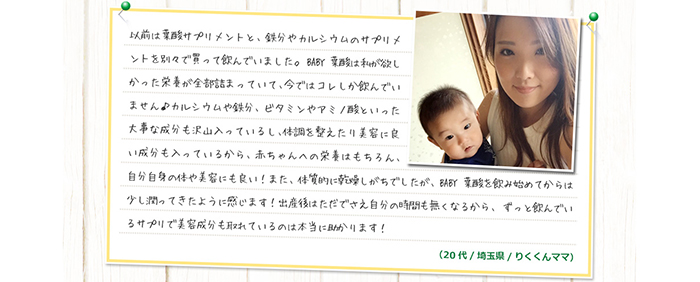 以前は葉酸サプリメントと、鉄分やカルシウムのサプリメ
ントを別々で買って飲んでいました。BABY 葉酸は私が欲し
かった栄養が全部詰まっていて、今ではコレしか飲んでい
ません♪カルシウムや鉄分、ビタミンやアミノ酸といった
大事な成分も沢山入っているし、体調を整えたり美容に良
い成分も入っているから、赤ちゃんへの栄養はもちろん、
自分自身の体や美容にも良い！また、体質的に乾燥しがちでしたが、BABY 葉酸を飲み始めてからは
少し潤ってきたように感じます！出産後はただでさえ自分の時間も無くなるから、ずっと飲んでい
るサプリで美容成分も取れているのは本当に助かります！
（20代 / 埼玉県 / りくくんママ）